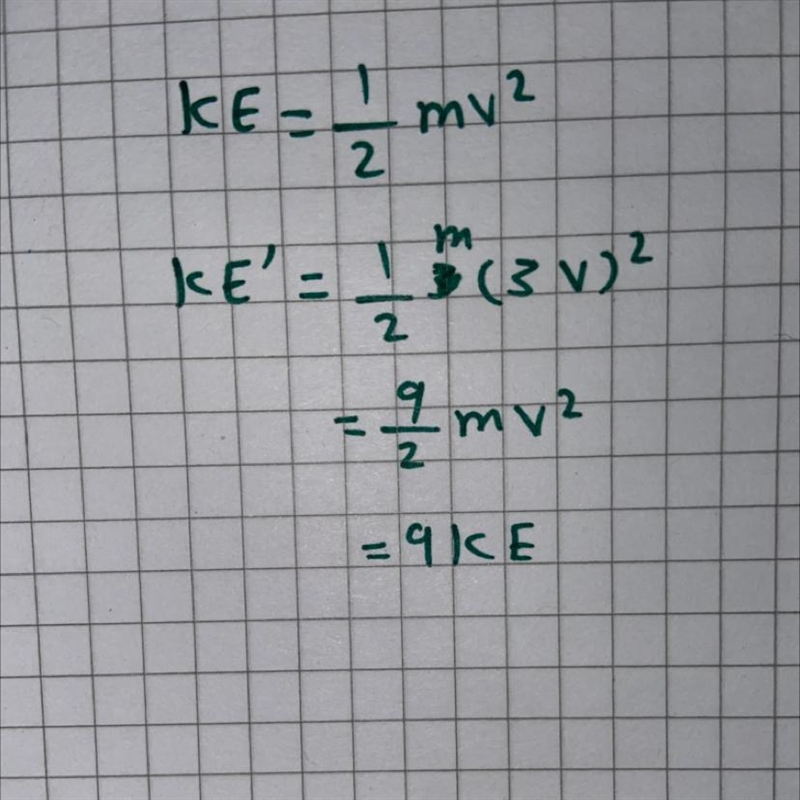 KE = 1/2 mv²
KE' = 1/2 m(3v)²
= 9/2 mv²
= 9KE